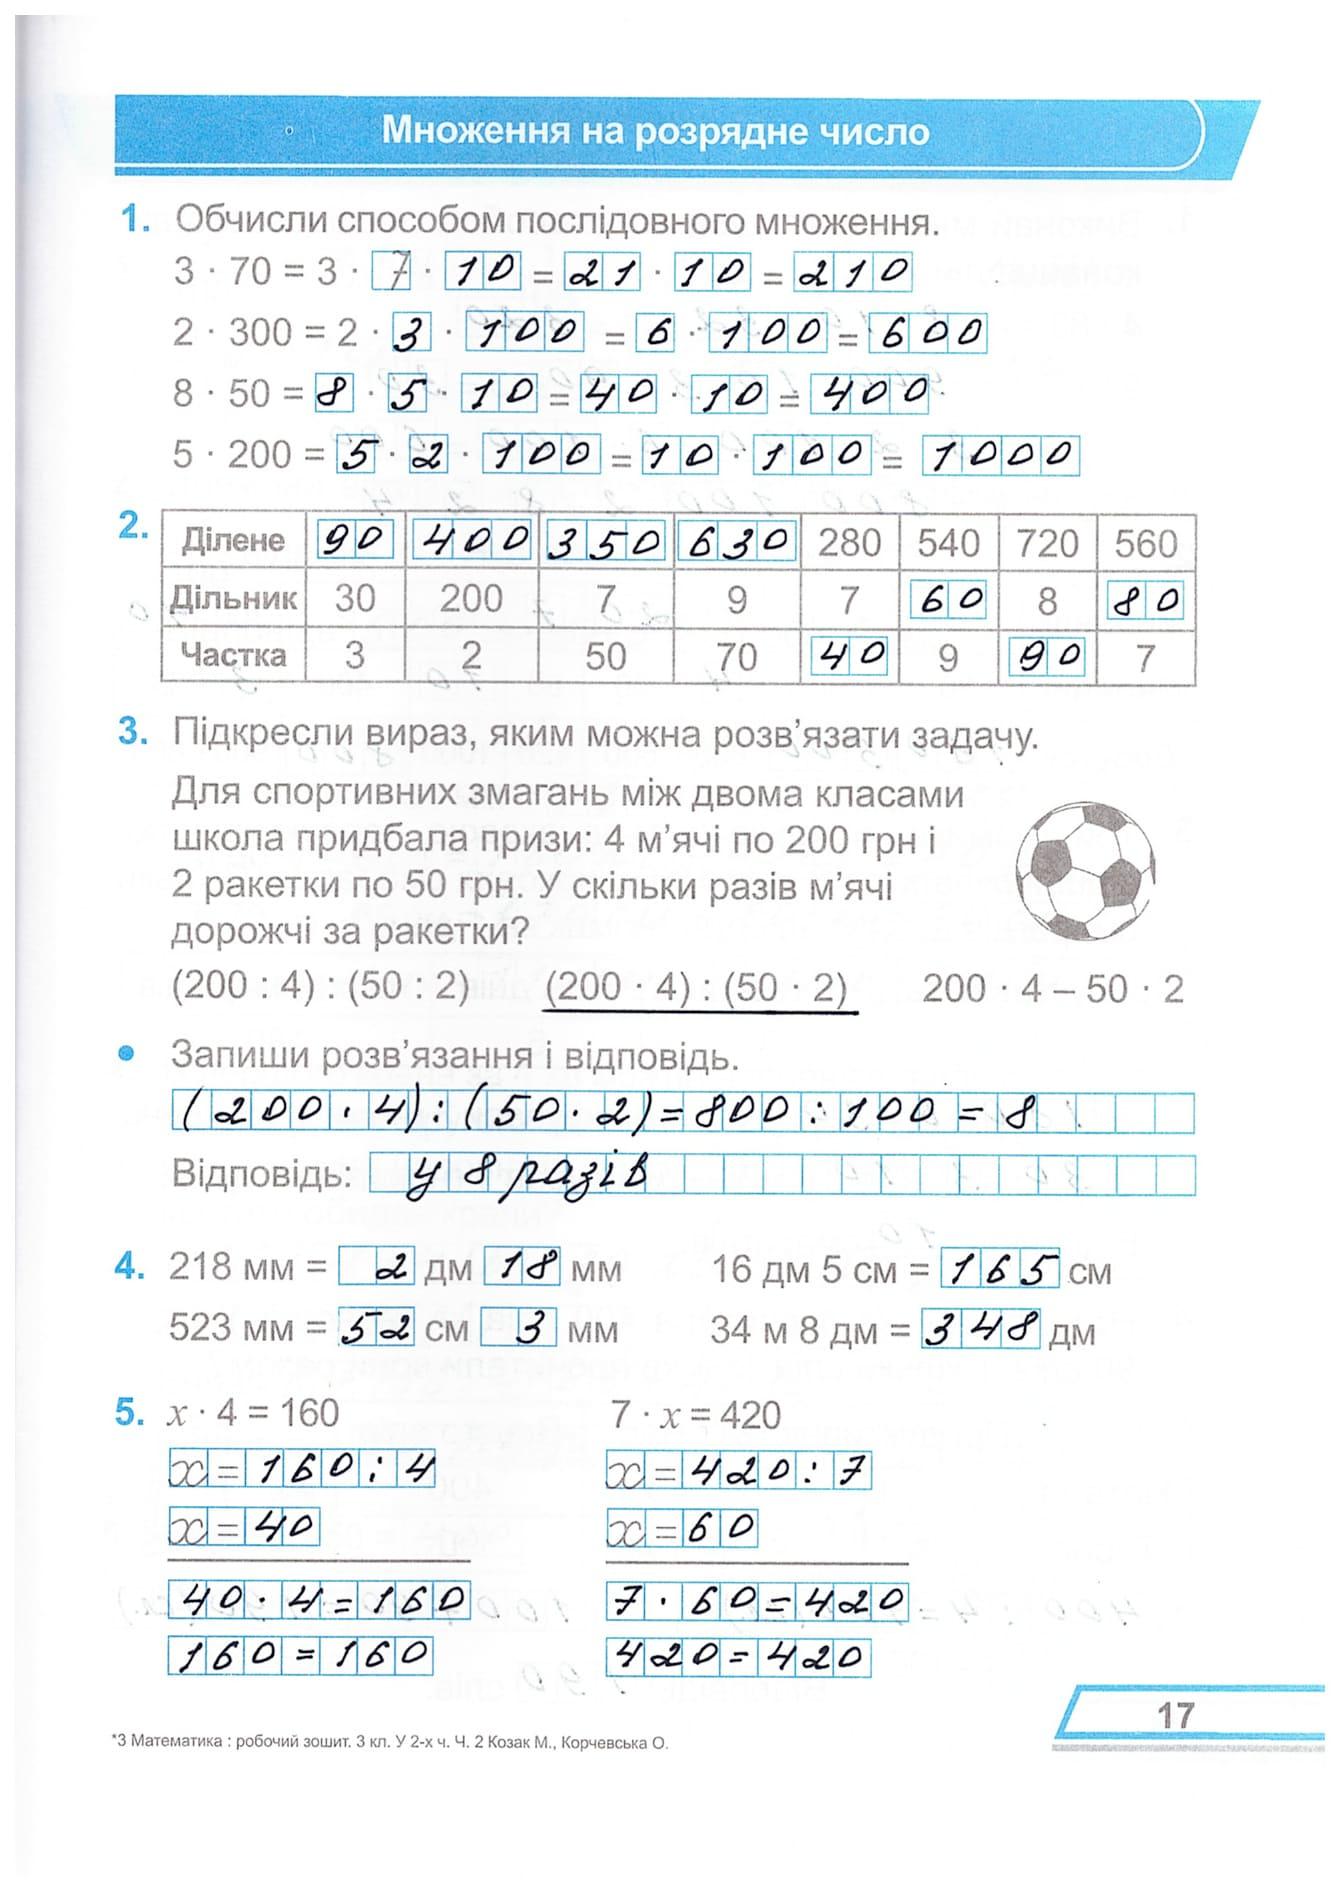 Множення на розрядне число
1. Обчисли способом послідовного множення.
3 · 70 = 3 · 7 · 10 = 21 · 10 = 210
2 · 300 = 2 · 3 · 100 = 6 · 100 = 600
8 · 50 = 8 · 5 · 10 = 40 · 10 = 400
5 · 200 = 5 · 2 · 100 = 10 · 100 = 1000
2. Ділене 90 400 350 630 280 540 720 560
Дільник 30 200 7 9 7 60 8 80
Частка 3 2 50 70 40 9 90 7
3. Підкресли вираз, яким можна розв’язати задачу.
Для спортивних змагань між двома класами
школа придбала призи: 4 м’ячі по 200 грн і
2 ракетки по 50 грн. У скільки разів м’ячі
дорожчі за ракетки?
(200 : 4) : (50 : 2) (200 · 4) : (50 · 2) 200 · 4 – 50 · 2
• Запиши розв’язання і відповідь.
(200 · 4) : (50 · 2) = 800 : 100 = 8
Відповідь: у 8 разів
4. 218 мм = 2 дм 18 мм 16 дм 5 см = 165 см
523 мм = 52 см 3 мм 34 м 8 дм = 348 дм
5. x · 4 = 160 7 · x = 420
x = 160 : 4 x = 420 : 7
x = 40 x = 60
40 · 4 = 160 7 · 60 = 420
160 = 160 420 = 420
17
*3 Математика : робочий зошит. 3 кл. У 2-х ч. Ч. 2 Козак М., Корчевська О.